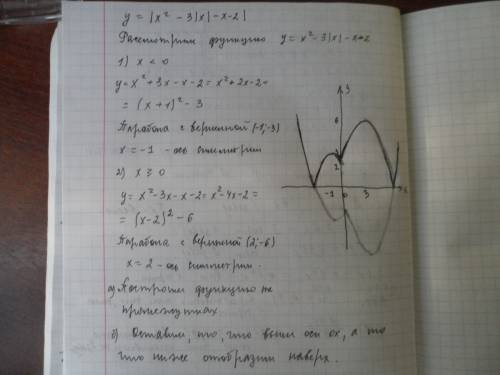 y = |x² - 3|x| - x - 2|
Рассмотрим функцию y = x² - 3|x| - x + 2
1) x < 0
y = x² + 3x - x - 2 = x² + 2x - 2 =
= (x + 1)² - 3
Парабола с вершиной (-1; -3)
x = -1 - ось симметрии
2) x ≥ 0
y = x² - 3x - x - 2 = x² - 4x - 2 =
= (x - 2)² - 6
Парабола с вершиной (2; -6)
x = 2 - ось симметрии.
а) Построим функцию на
промежутках
б) Оставим, то, что выше оси ох, а то
что ниже отобразим наверх.
y
6
2
-1 0 3 x